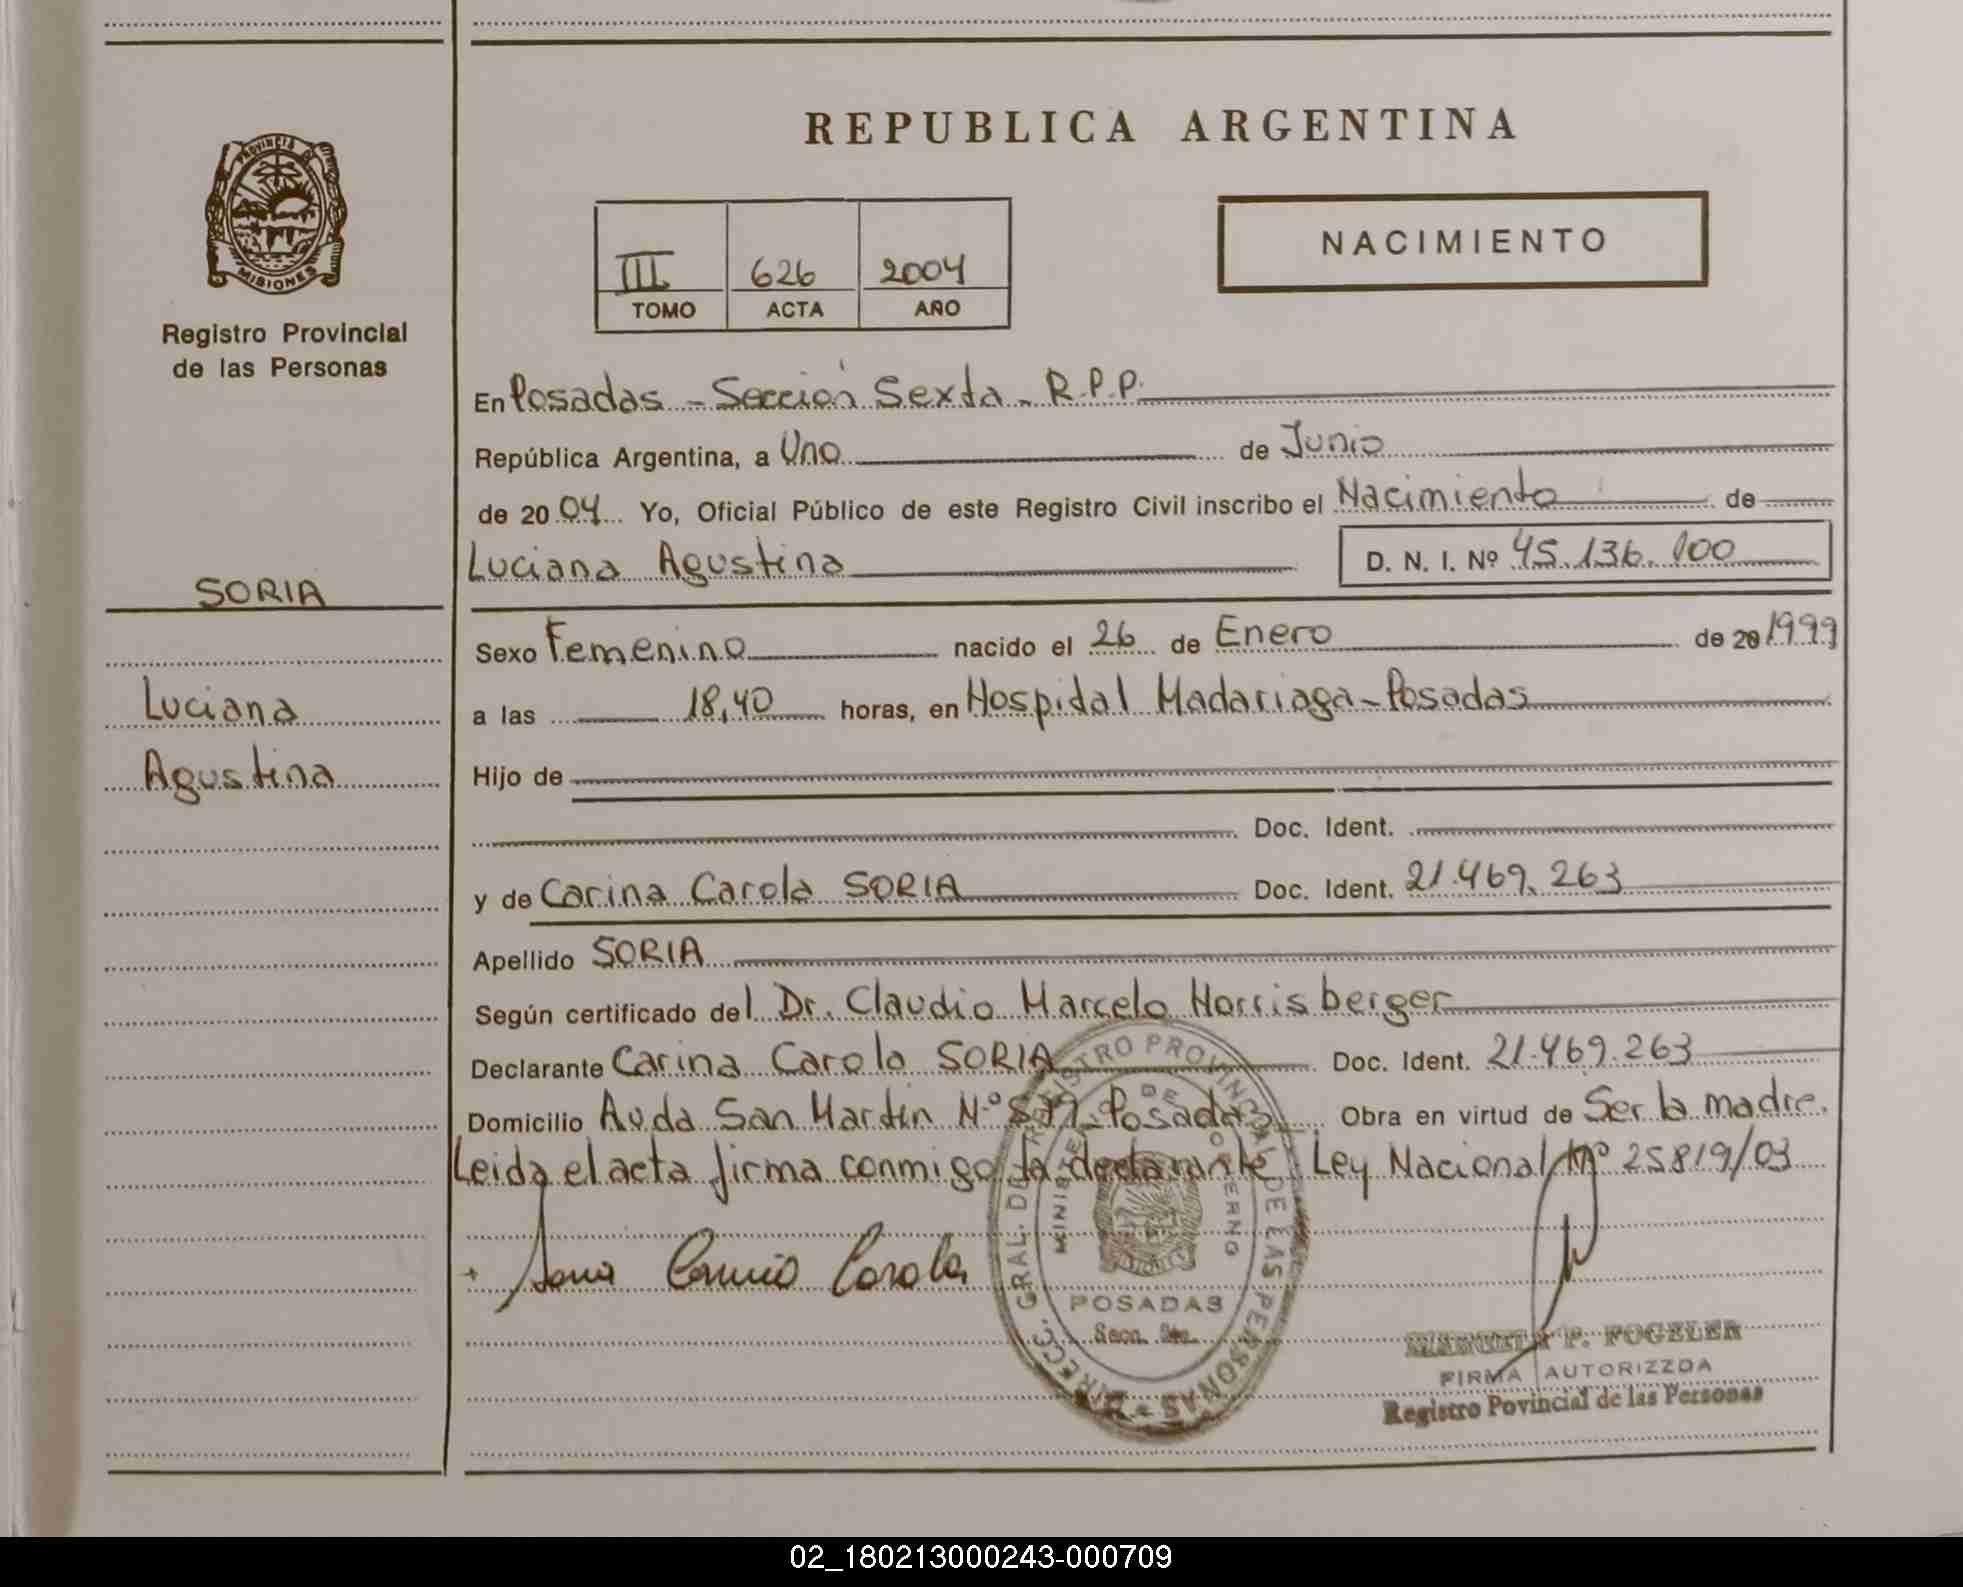 REPUBLICA ARGENTINA
PROVINCIA DE
MISIONES
Registro Provincial
de las Personas
NACIMIENTO
III 626 2004
TOMO ACTA AÑO
En Posadas - Sección Sexta - R.P.P.
República Argentina, a Uno de Junio
de 2004 Yo, Oficial Público de este Registro Civil inscribo el Nacimiento de
Luciana Agustina D. N. I. Nº 45.136.100
SORIA
Sexo Femenino nacido el 26 de Enero de 20 1999
Luciana
a las 18,40 horas, en Hospital Madariaga - Posadas
Agustina
Hijo de
Doc. Ident.
y de Carina Carola SORIA Doc. Ident. 21.469.263
Apellido SORIA
Según certificado del Dr. Claudio Marcelo Horrisberger
Declarante Carina Carola SORIA Doc. Ident. 21.469.263
Domicilio Avda San Martin N.º Posadas Obra en virtud de Ser la madre.
Leida el acta firma conmigo la declarante. Ley Nacional Nº 25819/03
Soria Carina Carola
DIRECC. GRAL. DE REGISTRO PROVINCIAL DE LAS PERSONAS
MINISTERIO DE GOBIERNO
POSADAS
Secc. 6ta.
P. FOGELER
FIRMA AUTORIZZDA
Registro Povincial de las Personas
02_180213000243-000709